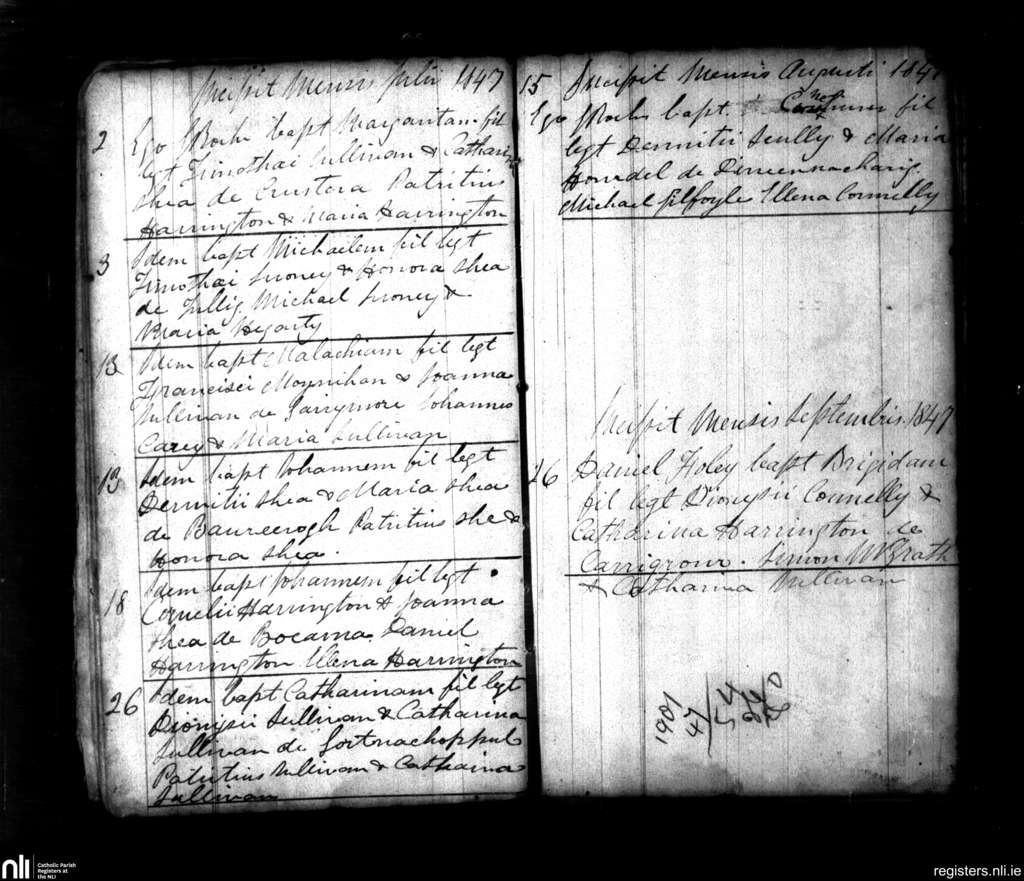 Incipit Mensis Julii 1847
2 Ego JRoche bapt Margaritam fil
lgt Timothai Sullivan & Catharina
Shea de Patritius
Harrington & Maria Harrington
3 Idem bapt Michaelem fil lgt
Timothai Looney & Honora Shea
de Tullig Michael Looney &
Maria Hegarty
13 Idem bapt Malachiam fil lgt
Francisci Moynihan & Joanna
Sullivan de Garrymore Johannes
Carey & Maria Sullivan
13 Idem bapt Johannem fil lgt
Dermitii Shea & Maria Shea
de Patritius Shea &
Honora Shea.
18 Idem bapt Johannem fil lgt
Cornelii Harrington & Joanna
Shea de Bocarna Daniel
Harrington Ellena Harrington
26 Idem bapt Catharinam fil lgt
Dionysii Sullivan & Catharina
Sullivan de
Patritius Sullivan & Catharina
Sullivan
Incipit Mensis Augusti 1847
15 Ego JRoche bapt. fil
lgt Dermitii Scully & Maria
de
Michael Gilfoyle Ellena Connelly
Incipit Mensis Septembris 1847
26 Daniel Foley bapt Brigidam
fil lgt Dionysii Connelly &
Catharina Harrington de
Carrigrour. Simon McGrath
& Catharina Sullivan
1901
47
54
nli
Catholic Parish
Registers at
the NLI
registers.nli.ie